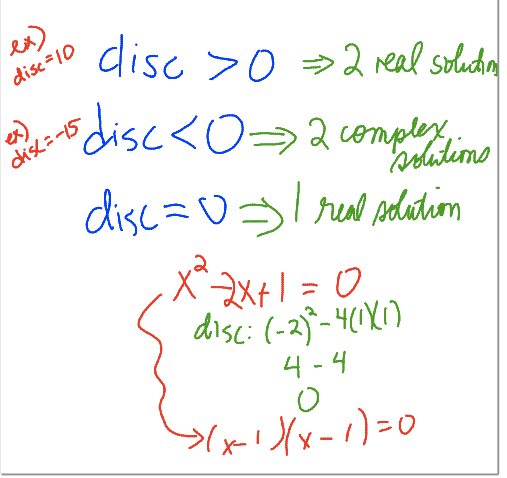 ex) disc=10
disc > 0 ⇒ 2 real solution
ex) disc=-15
disc < 0 ⇒ 2 complex solutions
disc = 0 ⇒ 1 real solution
x² - 2x + 1 = 0
disc: (-2)² - 4(1)(1)
4 - 4
0
(x - 1)(x - 1) = 0